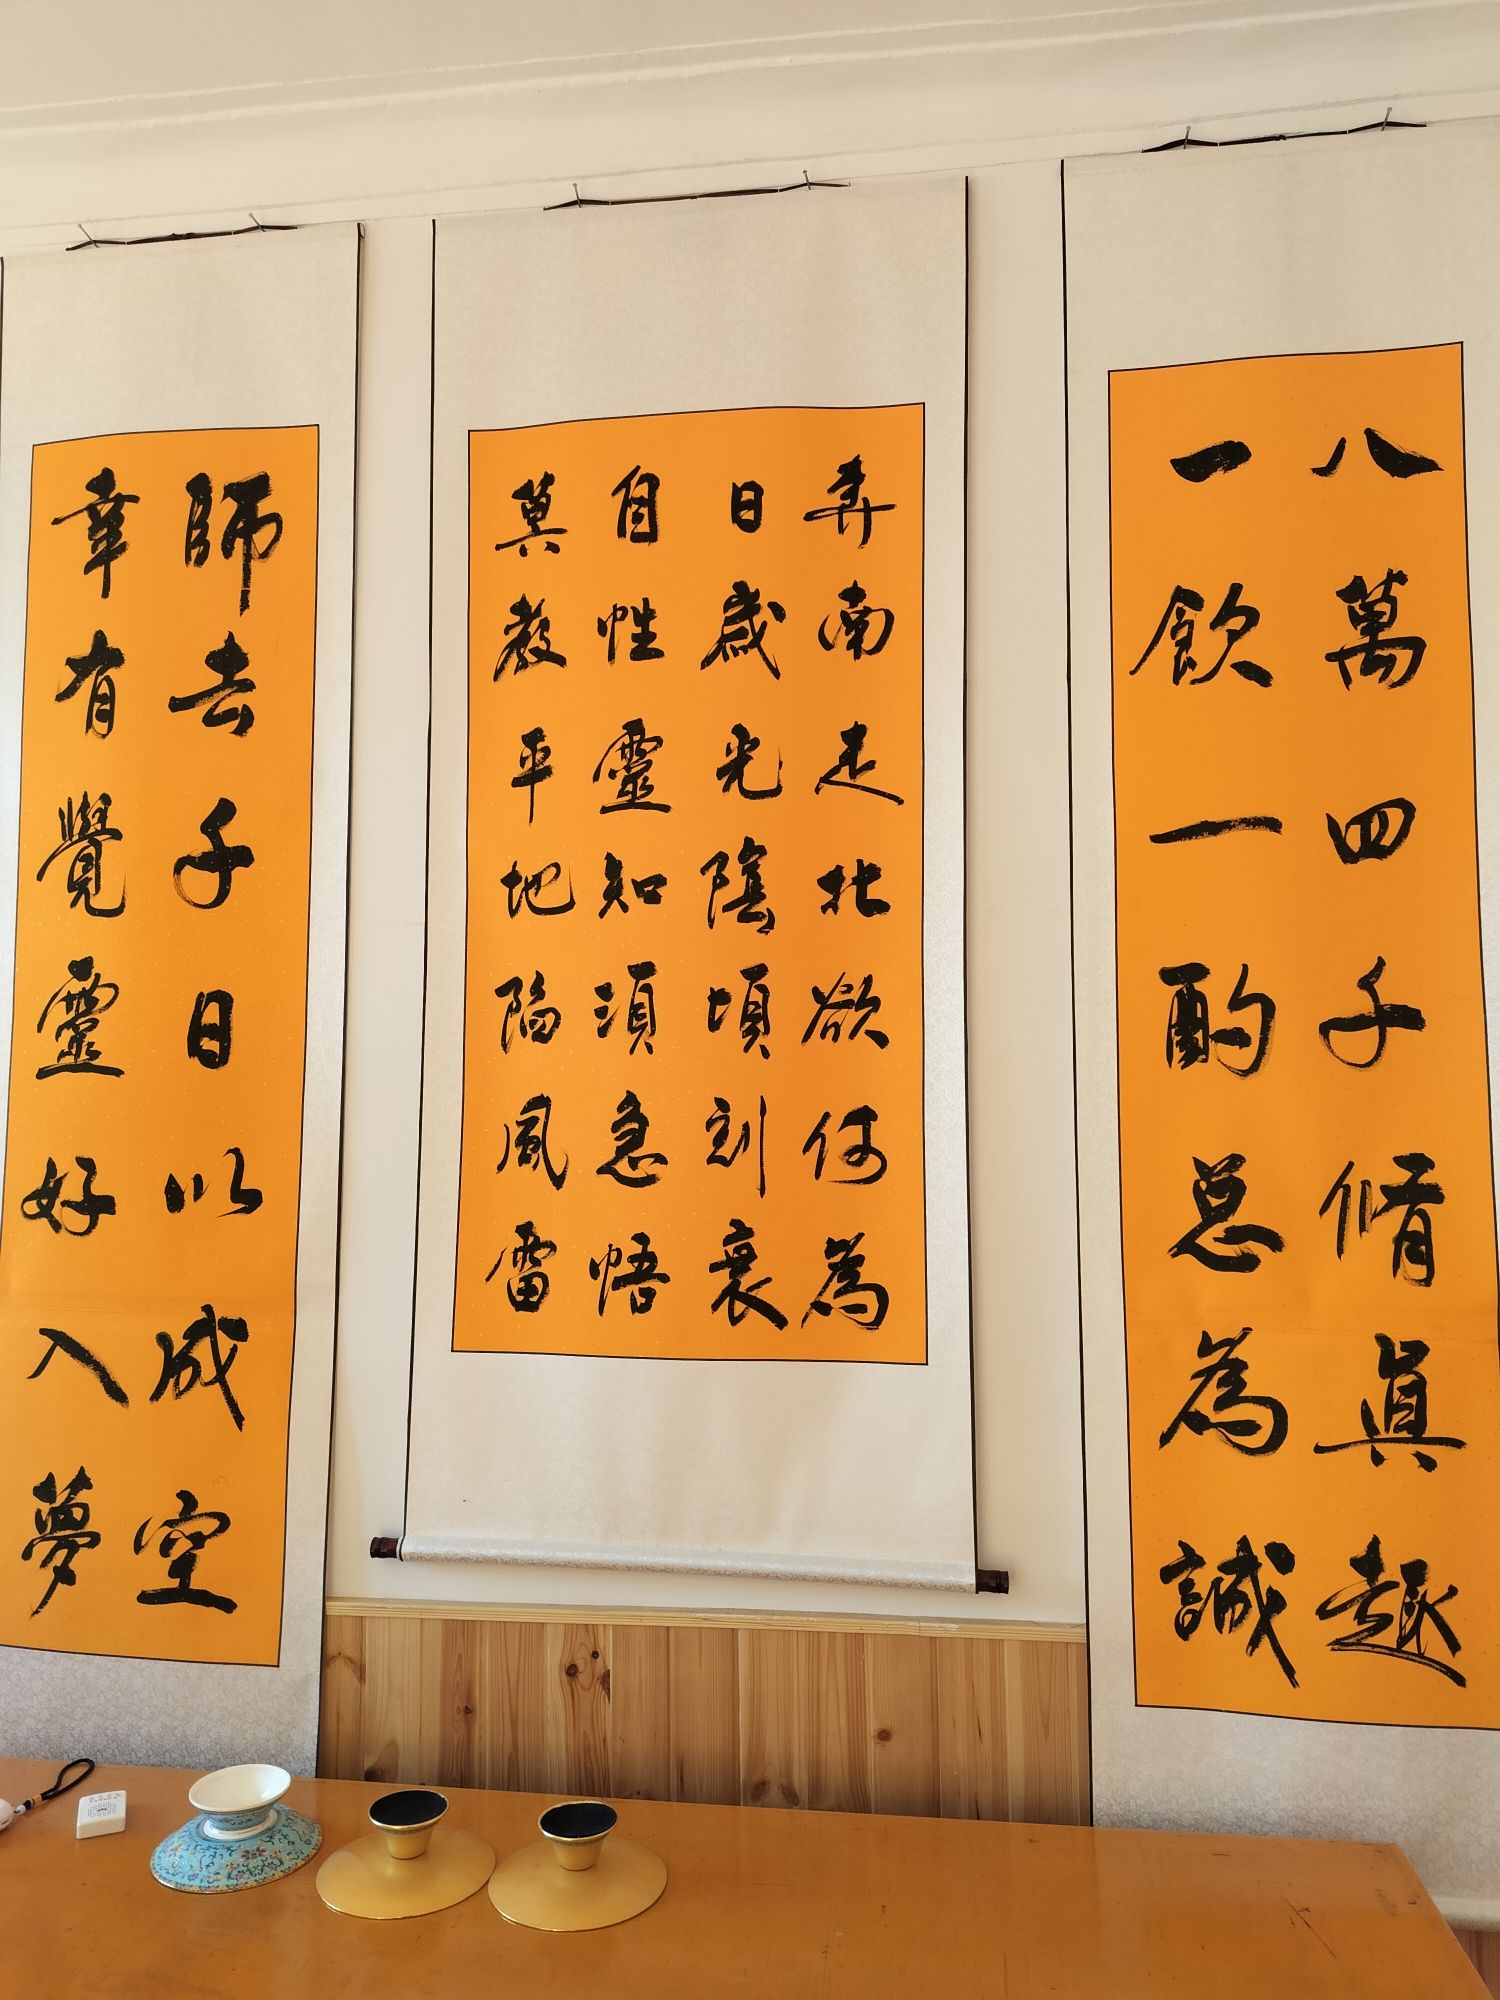 八萬四千脩眞趣
一飲一酌总為誠
奔南走北欲何為
日歲光陰頃刻衰
自性靈知須急悟
莫教平地陷風雷
師去千日以成空
幸有覺靈好入夢